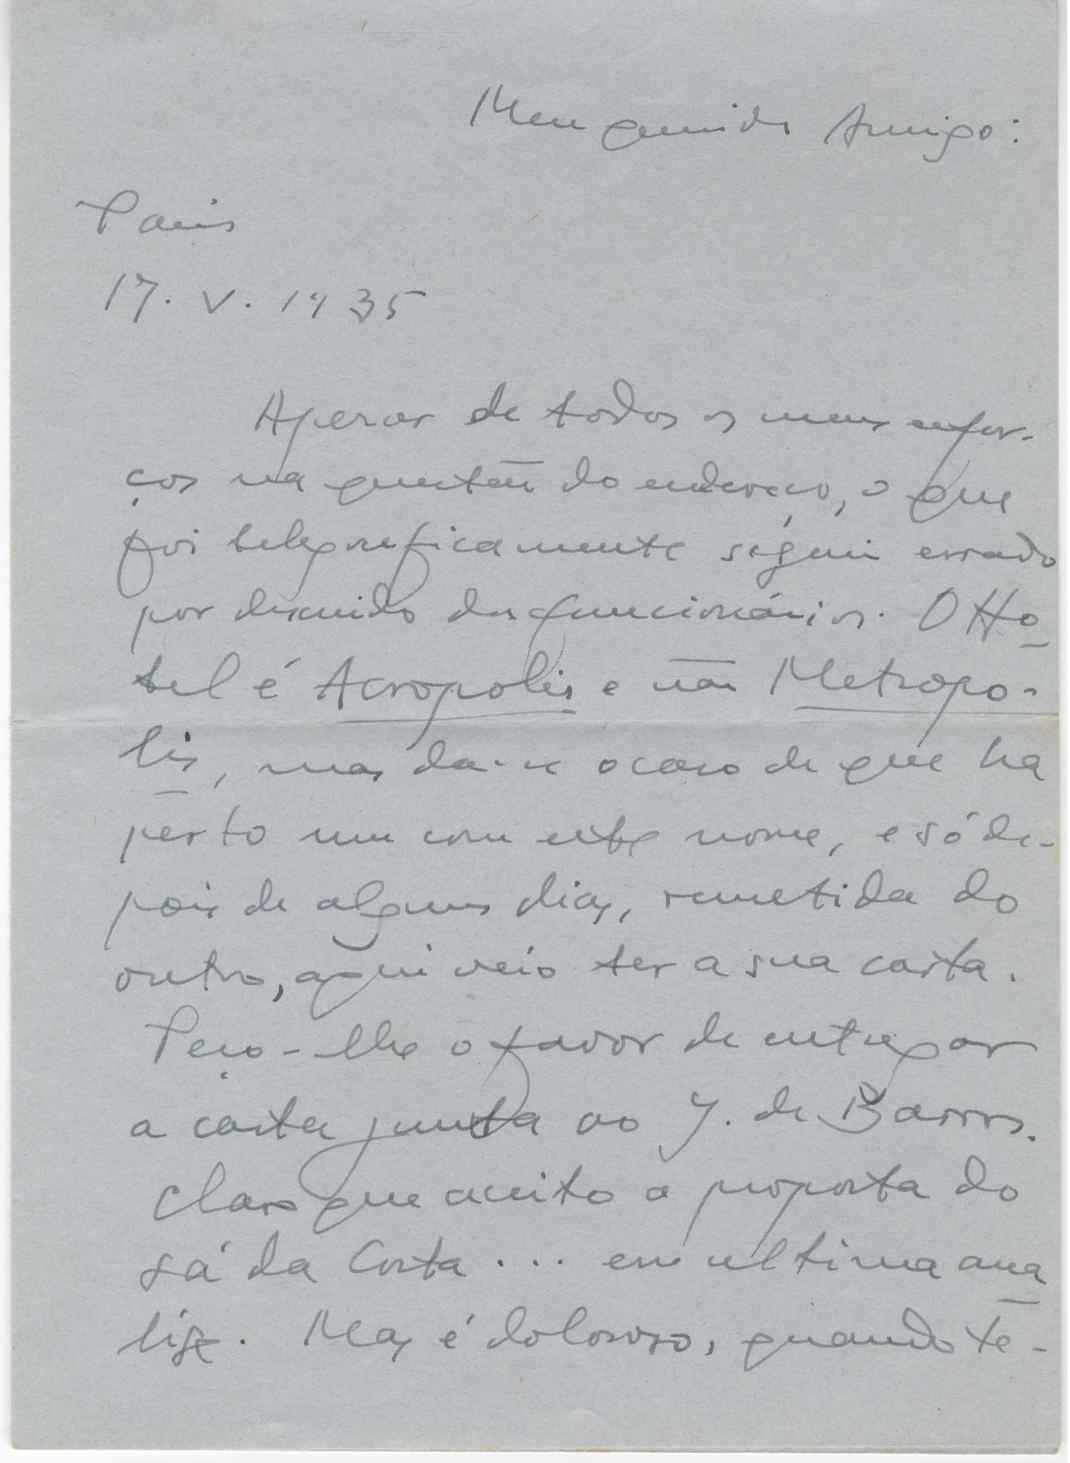 Meu querido Amigo:
Paris
17. V. 1935
Apesar de todos os meus esfor-
ços na questão do endereço, o que
foi telegraficamente seguiu errado
por descuido dos funcionários. O Ho-
tel é Acropolis e não Metropo-
lis, mas da-se o caso de que ha
perto um com este nome, e só de-
pois de alguns dias, remetida do
outro, aqui veio ter a sua carta.
Peço-lhe o favor de entregar
a carta junta ao J. de Barros.
Claro que aceito a proposta do
Sá da Costa... em ultima aná
lise. Mas é doloroso, quando te-